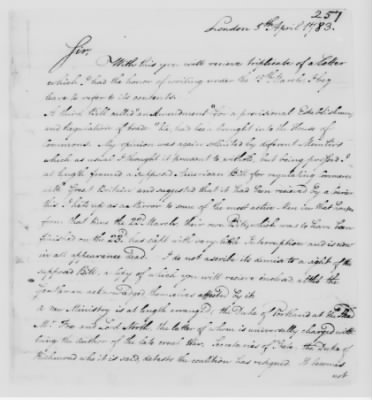 251
London 5th April 1783.
Sir,
With this you will receive triplicate of a Letter
which I had the honor of writing under the 13th March. I beg
leave to refer to its contents.
A third Bill called an Amendment "for a provisional Establishment
and regulation of trade" &c. had been brought into the House of
Commons. My opinion was again solicited by different Members
which as usual I thought it pursuant to withold, but being pressed I at
length framed a supposed American Bill for regulating commerce
with Great Britain and suggested that it had been received by a
this I held up as a Mirror to some of the most active Men in that
from that time the 22d March, their own Bill, which was to have been
finished on the 23d. has slept with very little Interruption and is now
in all appearance dead. I do not ascribe its demise to a sight of the
supposed Bill, a Copy of which you will receive inclosed altho the
Gentlemen acknowledged themselves affected by it
a new Ministry is at length arranged, the Duke of Portland at the Head
Mr. Fox and Lord North, the latter of whom is universally charged with
being the author of the late cruel War. Secretaries of State, the Duke of
Richmond who it is said detests the coalition has resigned. It
not